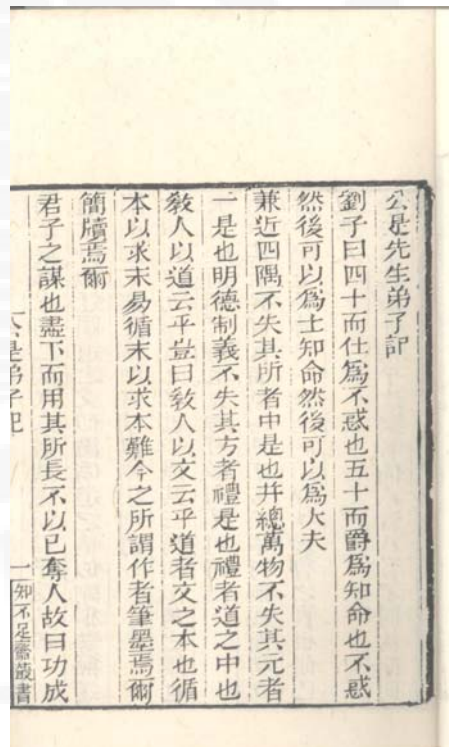 公是先生弟子記
劉子曰四十而仕爲不惑也五十而爵爲知命也不惑
然後可以爲士知命然後可以爲大夫
兼近四隅不失其所者中是也并總萬物不失其元者
一是也明德制義不失其方者禮是也禮者道之中也
敎人以道云乎豈曰敎人以文云乎道者文之本也循
本以求末易循末以求本難今之所謂作者筆墨焉爾
簡牘焉爾
君子之謀也盡下而用其所長不以已奪人故曰功成
公是弟子記
一
知不足齋叢書